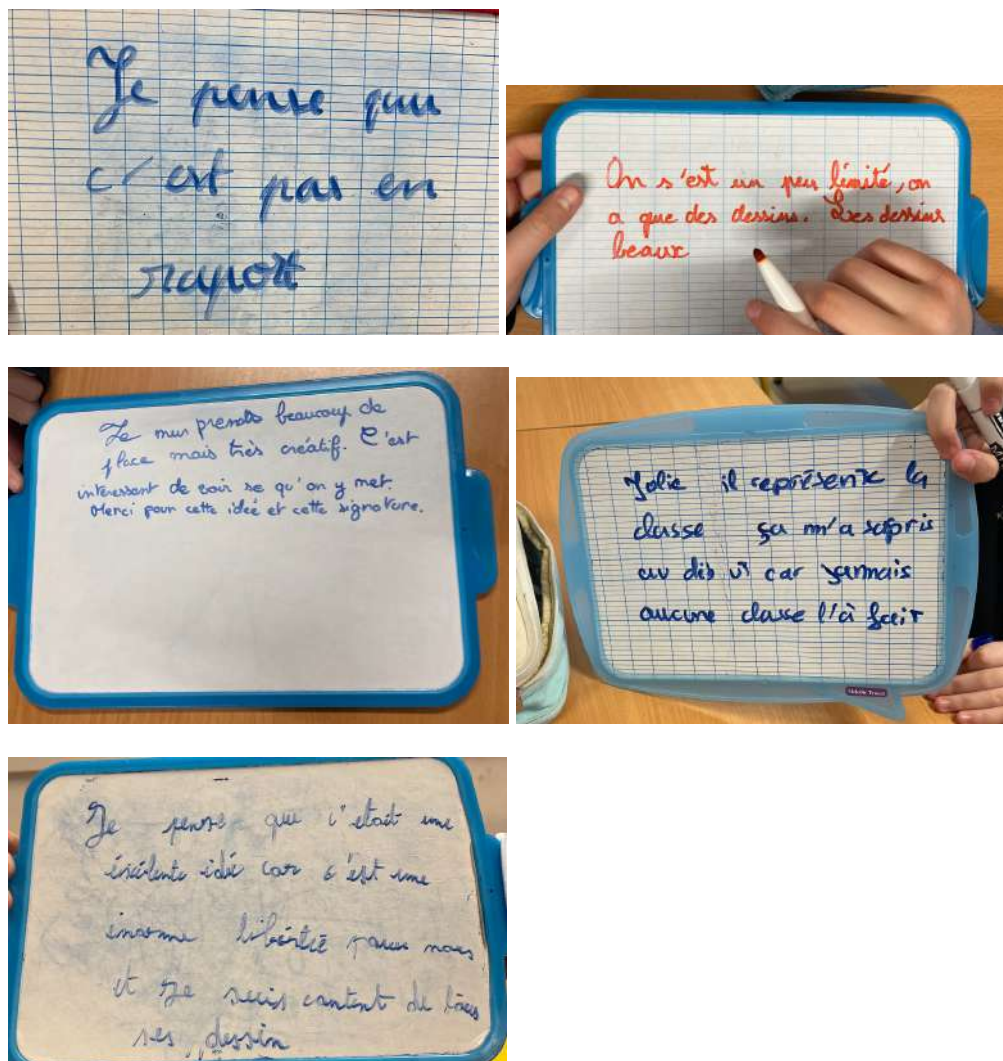 Je pense que
c'est pas en
raport
On s'est un peu limité, on
a que des dessins. Les dessins
beaux
Le mur prends beaucoup de
place mais très créatif. C'est
intéressant de voir se qu'on y met.
Merci pour cette idée et cette signature.
Jolie il représente la
classe ça m'a surpris
au dib car jammais
aucune classe l'à fait
Je pense que c'etait une
éxcélente idée car c'est une
énorme libértié pour nous
et je suis content de tous
ses dessin